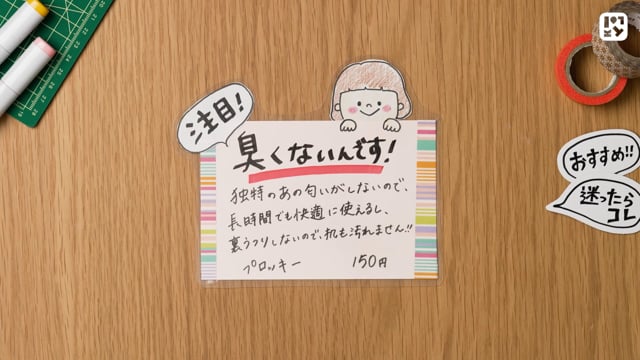 注目!
臭くないんです!
独特のあの匂いがしないので、
長時間でも快適に使えるし、
裏うつりしないので、机も汚れません!!
プロッキー 150円
おすすめ!!
迷ったら
コレ